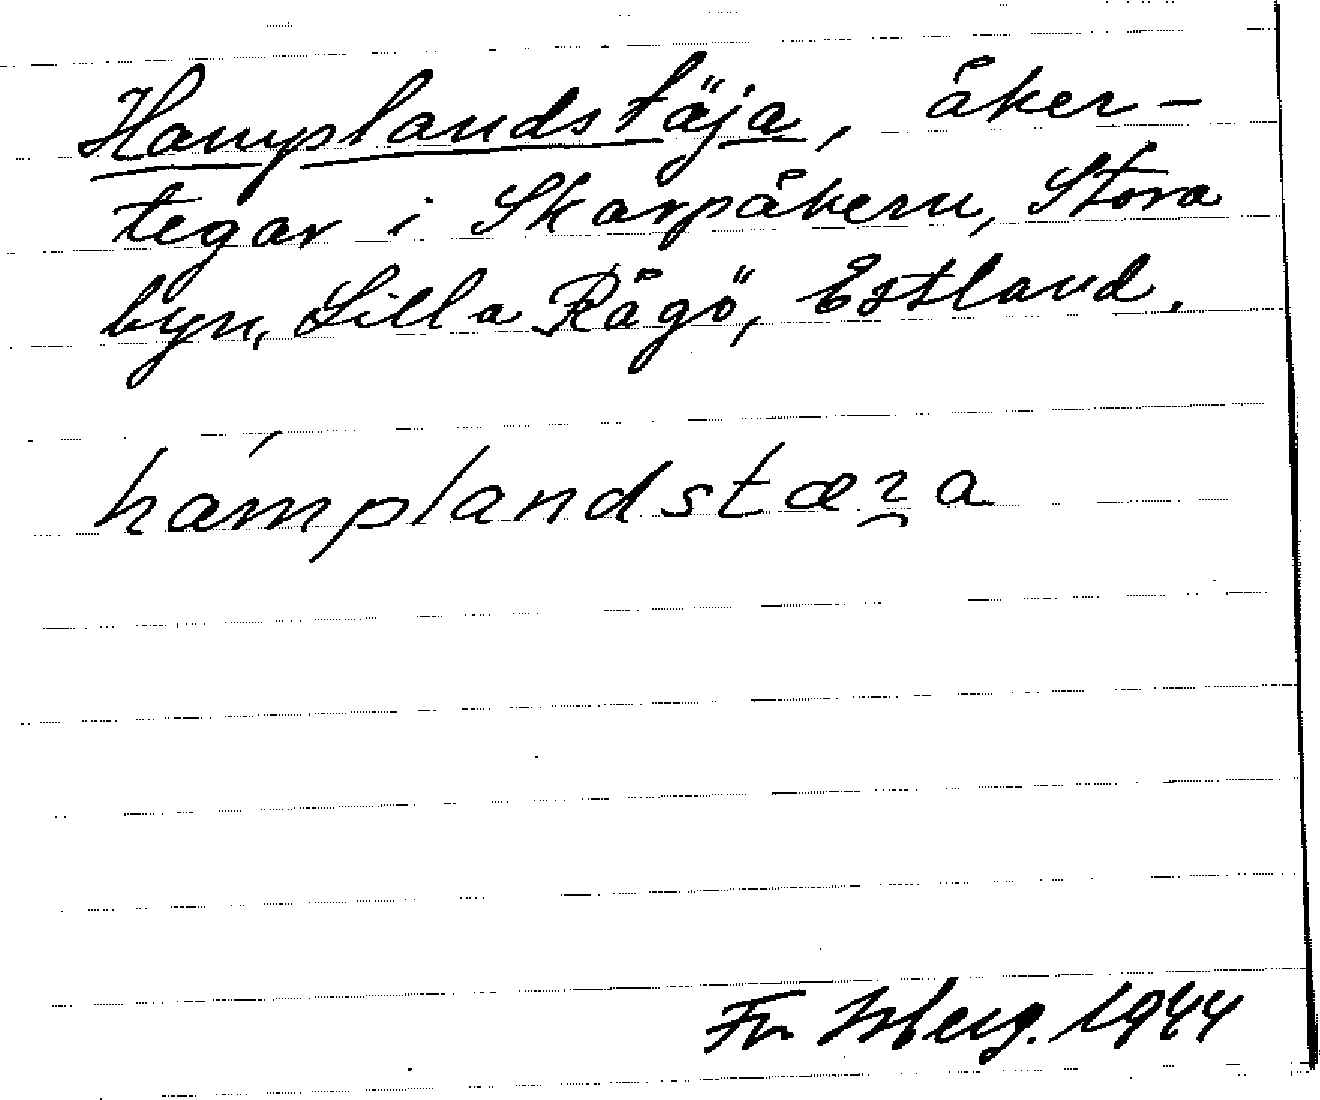 Hamplandstäja, åker-
tegar i Skarpåkern, Stora
byn, Lilla Rågö, Estland.
hámplandstæꝛ̯a
Fr Isberg. 1944